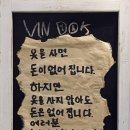 VIN DOK
옷을 사면
돈이 없어집니다.
하지만
옷을 사지 않아도
돈은 없어집니다.
여러분